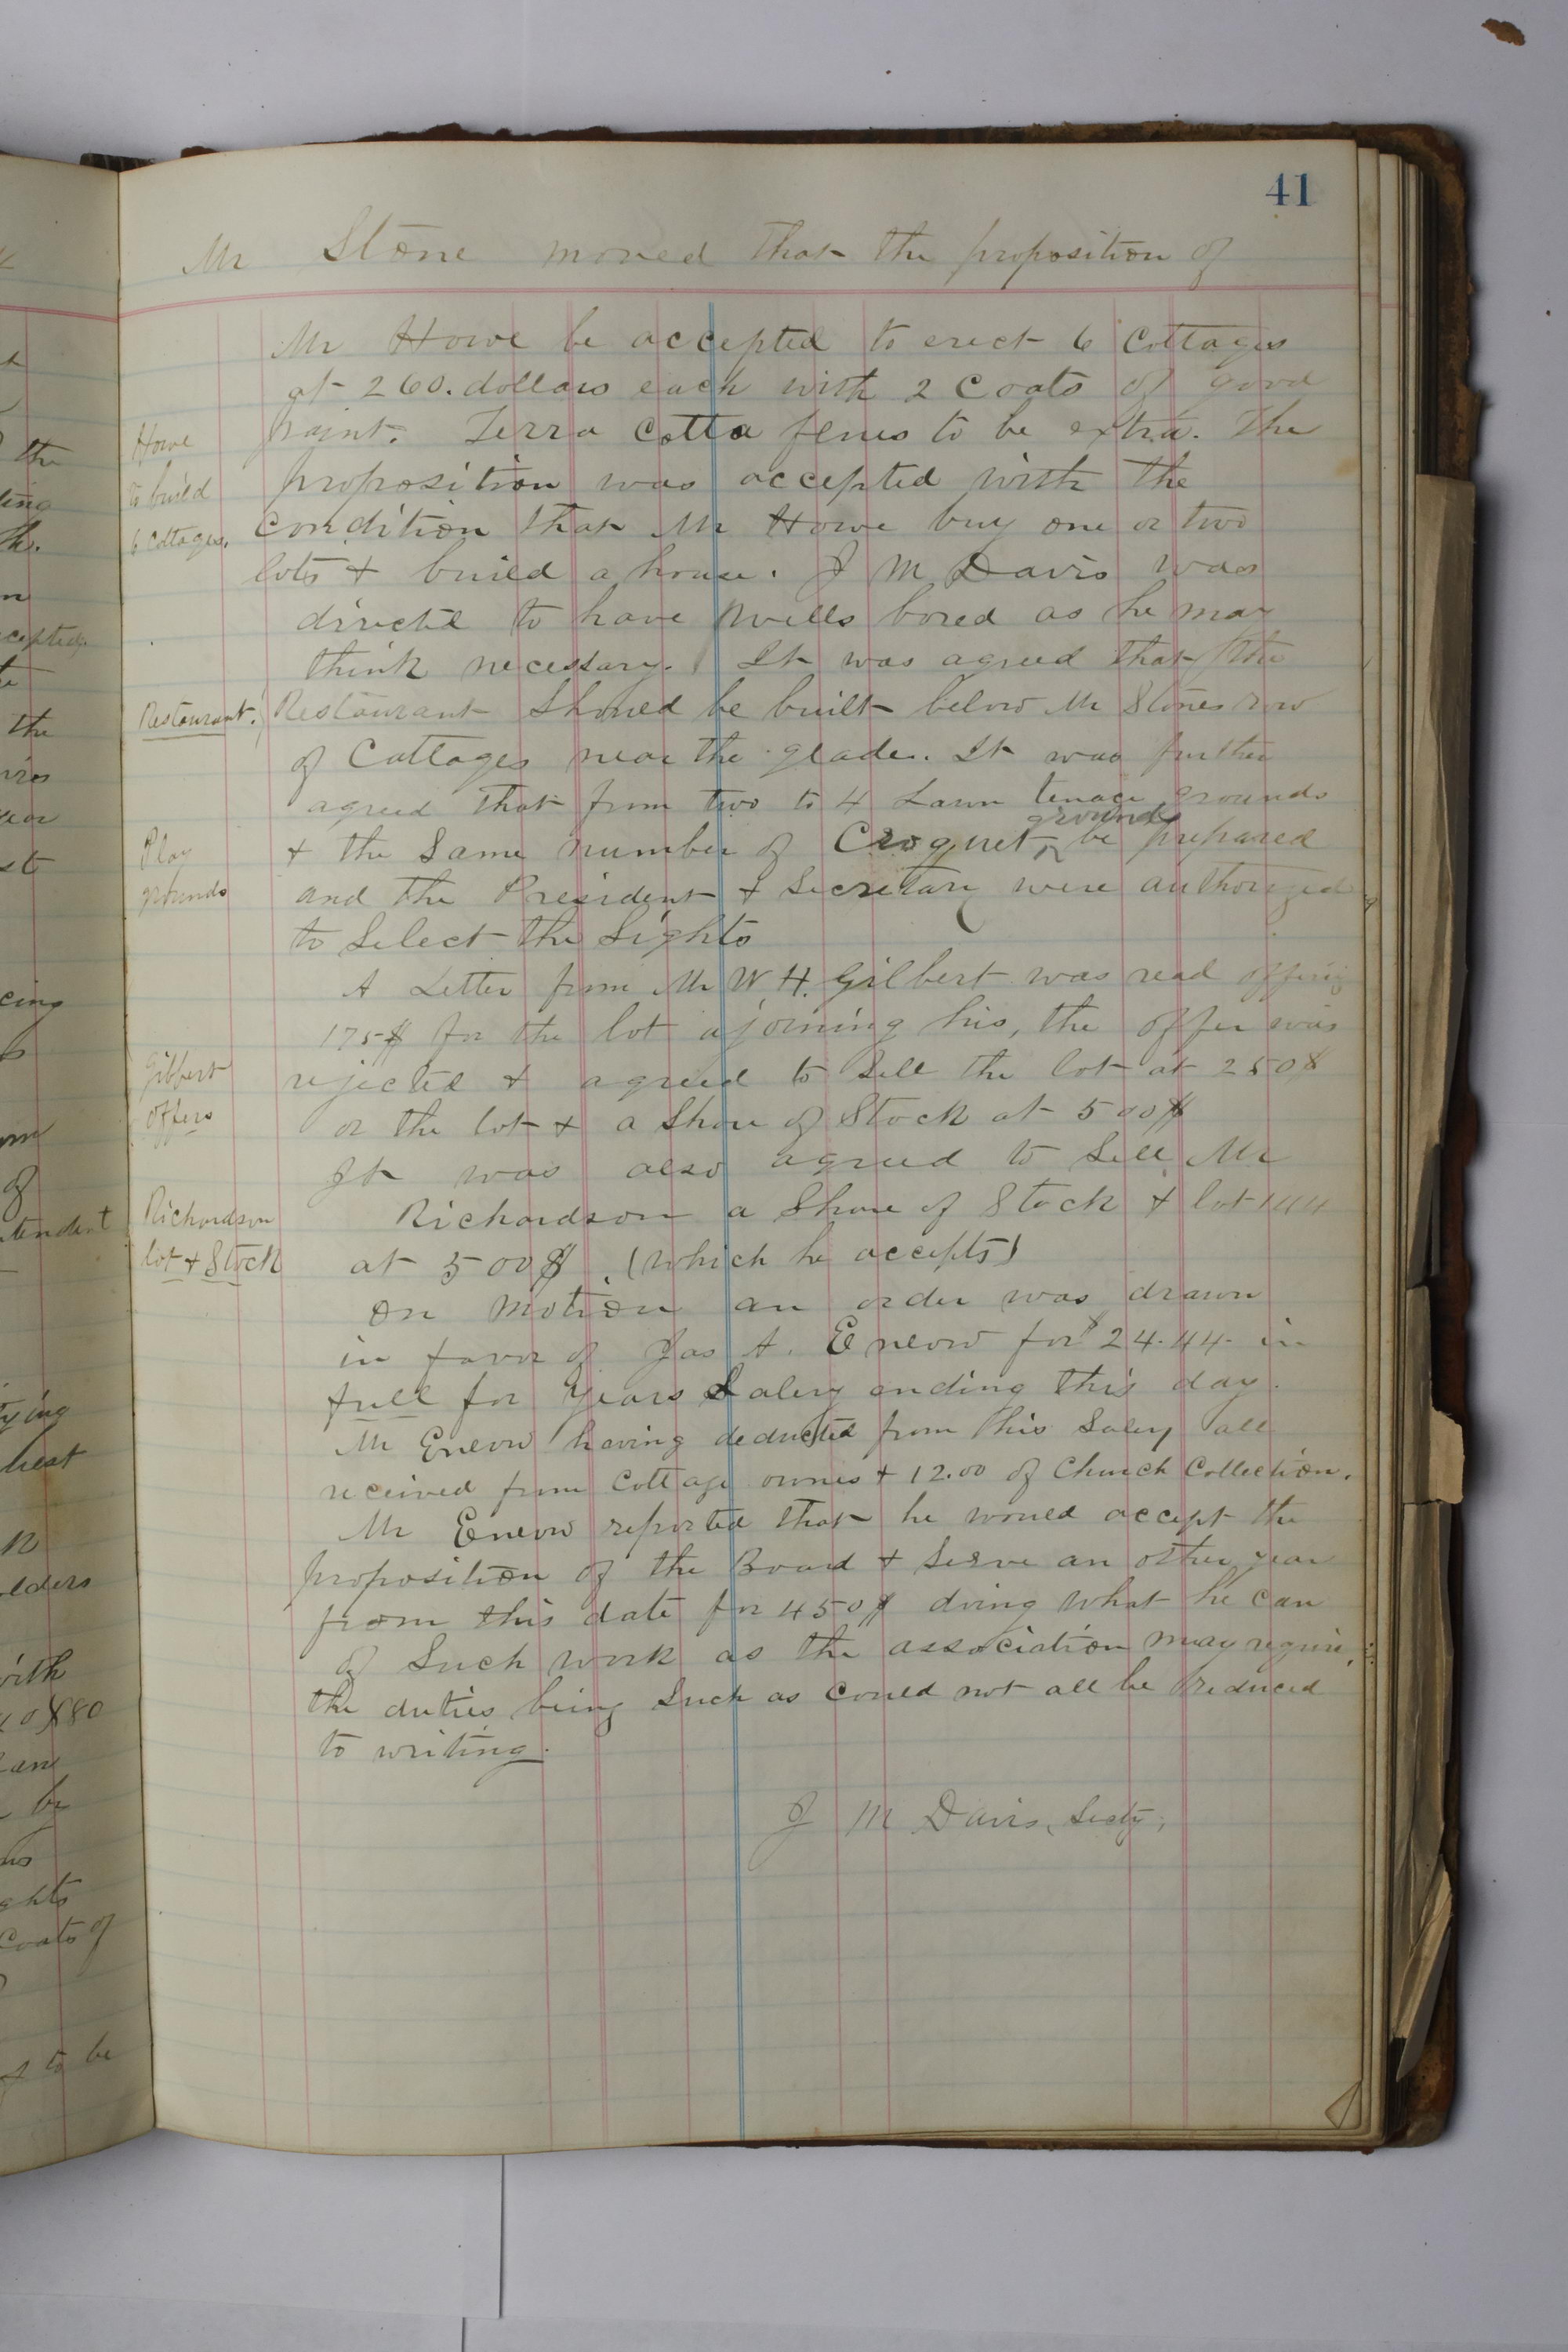 41
Mr Stone moved that the proposition of
Mr Howe be accepted to erect 6 Cottages
at 260. dollars each with 2 Coats of good
paint. Terra Cotta flues to be extra. The
Howe
to build
6 Cottages.
proposition was accepted with the
condition that Mr Howe buy one or two
lots & build a house. J M Davis was
directed to have wells bored as he may
think necessary. It was agreed that the
Restaurant.
Restaurant Should be built below Mr Stones row
of Cottages near the glade. It was further
agreed that from two to 4 Lawn grounds
& the Same number of Croquet grounds be prepared
Play
grounds
and the President & Secretary were authorized
to Select the Sights
A Letter from Mr W H. Gilbert was read offering
175$ for the lot ajoining his, the offer was
Gilbert
offers
rejected & agreed to Sell the lot at 250$
or the lot & a Share of Stock at 500$
It was also agreed to Sell Mr
Richardson
lot & Stock
Richardson a Share of Stock & lot 144
at 500$. (which he accepts)
on motion an order was drawn
in favor of Jas A. Enlow for $24.44 in
full for Years Salery ending this day.
Mr Enlow having deducted from his Salery all
received from Cottage owners & 12.00 of Church Collection.
Mr Enlow reported that he would accept the
proposition of the Board & Serve an other year
from this date for 450$ doing what he can
of Such work as the association may require,
the duties being Such as Could not all be reduced
to writing.
J M Davis, Secty,
the
ling
the
cing
of
tendent
tying
lders
with
80
be
ghts
Coats of
to be